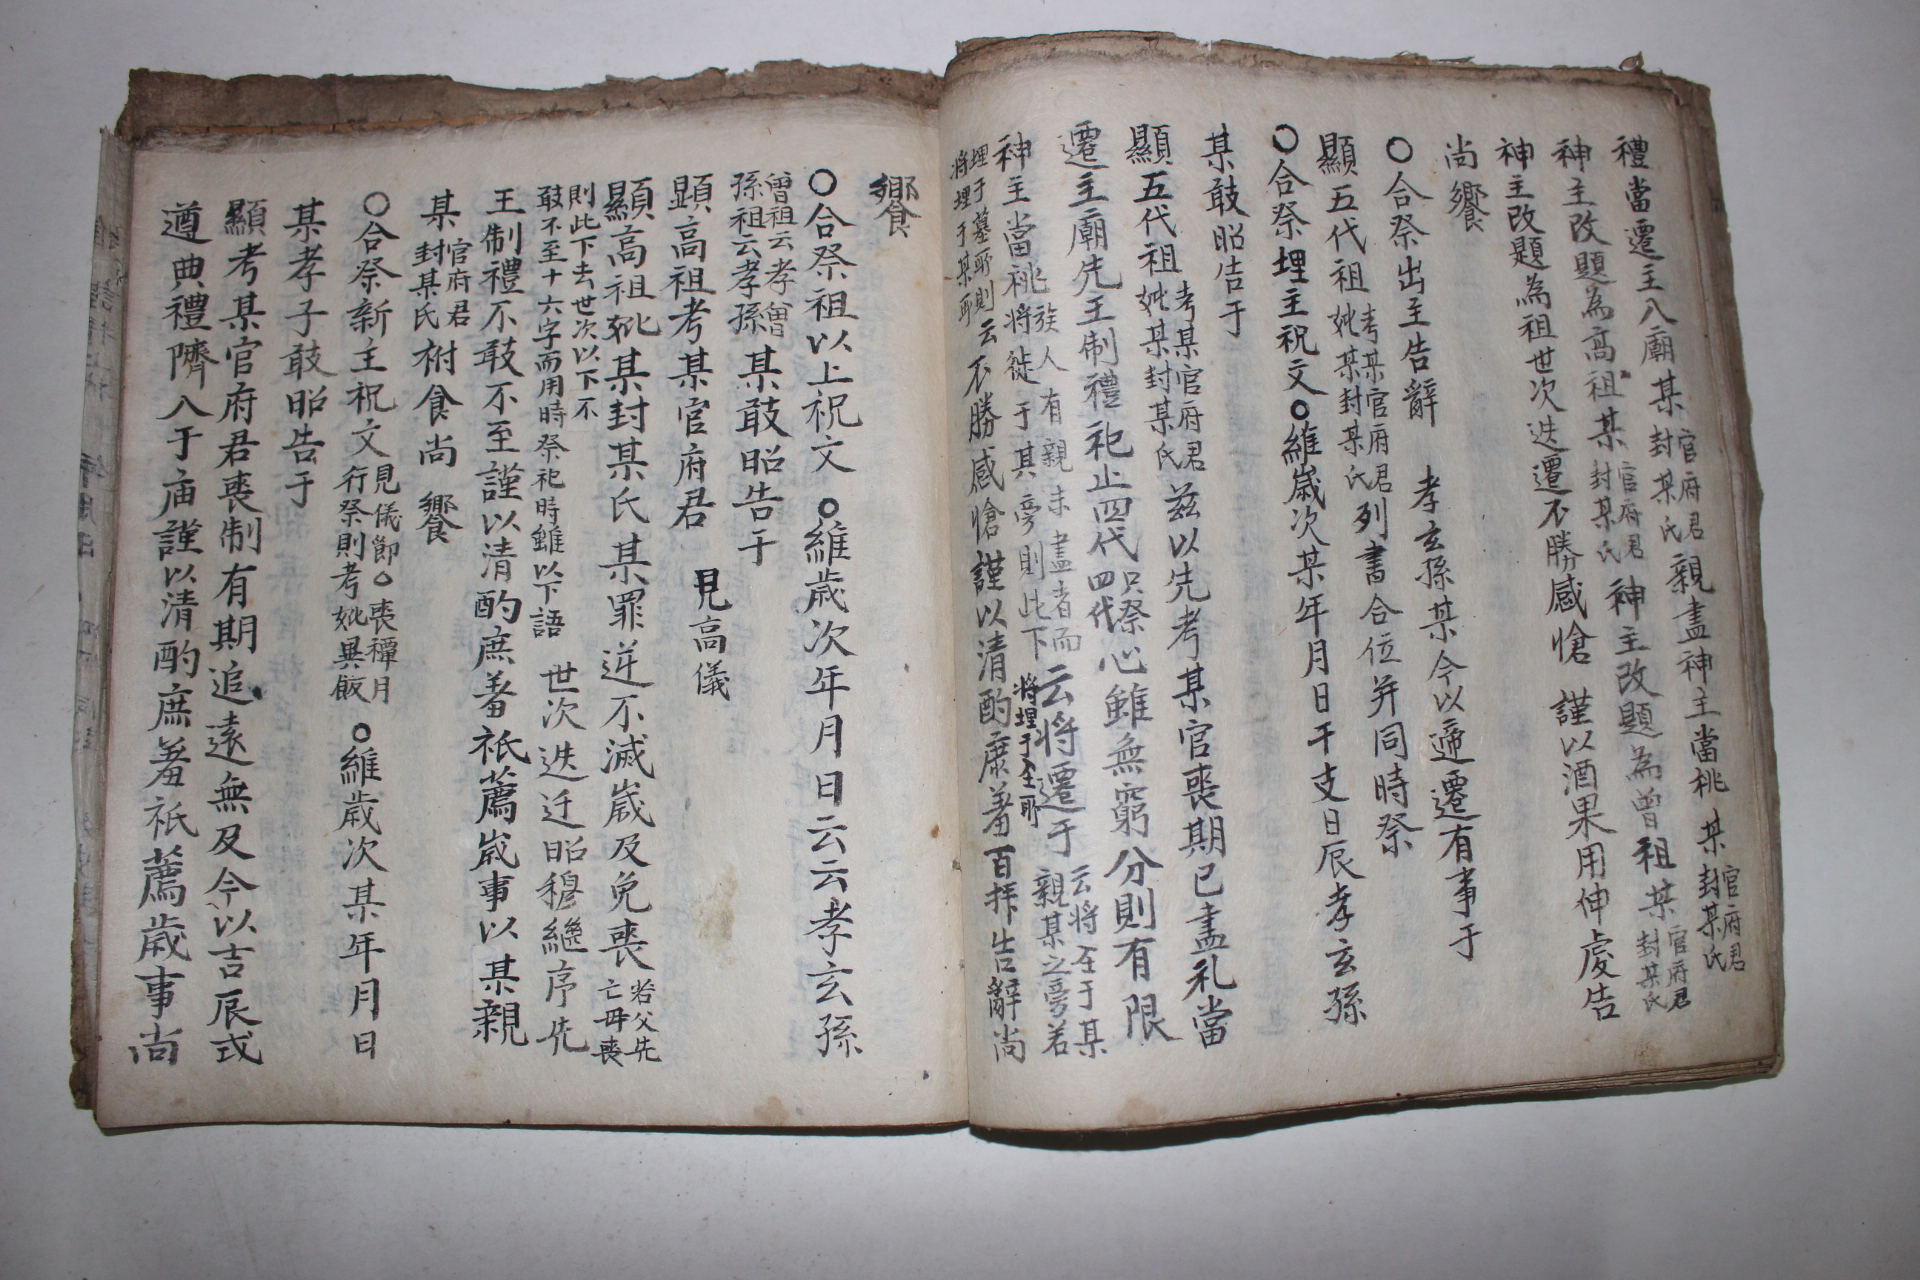 禮當遷主入廟某封某氏官府君親盡神主當祧某封某氏官府君
神主改題為高祖某封某氏官府君神主改題為曾祖某封某氏官府君
神主改題為祖世次迭遷不勝感愴謹以酒果用伸虔告
尚饗
○合祭出主告辭 孝玄孫某今以遞遷有事于
顯五代祖考某官府君妣某封某氏列書合位并同時祭
○合祭埋主祝文○維歲次某年月日干支日辰孝玄孫
某敢昭告于
顯五代祖考某官府君妣某封某氏玆以先考某官喪期已盡礼當
遷主廟先王制禮祀止四代四代只祭心雖無窮分則有限
神主當祧將徙于其旁則此下族人有親未盡者而云將遷于將埋于全所云將至于某親某之旁若
埋于墓所則將埋于某所云不勝感愴謹以清酌庶羞百拜告辭尚
饗
○合祭祖以上祝文○維歲次年月日云云孝玄孫
曾祖云孝曾孫祖云孝孫某敢昭告于
顯高祖考某官府君 見高儀
顯高祖妣某封某氏某罪逆不滅歲及免喪若父先亡母喪
則此下去世次以下不敢不至十六字而用時祭祀時雖以下語世次迭迁昭穆繼序先
王制禮不敢不至謹以清酌庶羞祇薦歲事以某親
某官府君封某氏祔食尚饗
○合祭新主祝文見儀節○喪禫月行祭則考妣異板○維歲次某年月日
某孝子敢昭告于
顯考某官府君喪制有期追遠無及今以吉辰式
遵典禮隮入于庙謹以清酌庶羞祇薦歲事尚